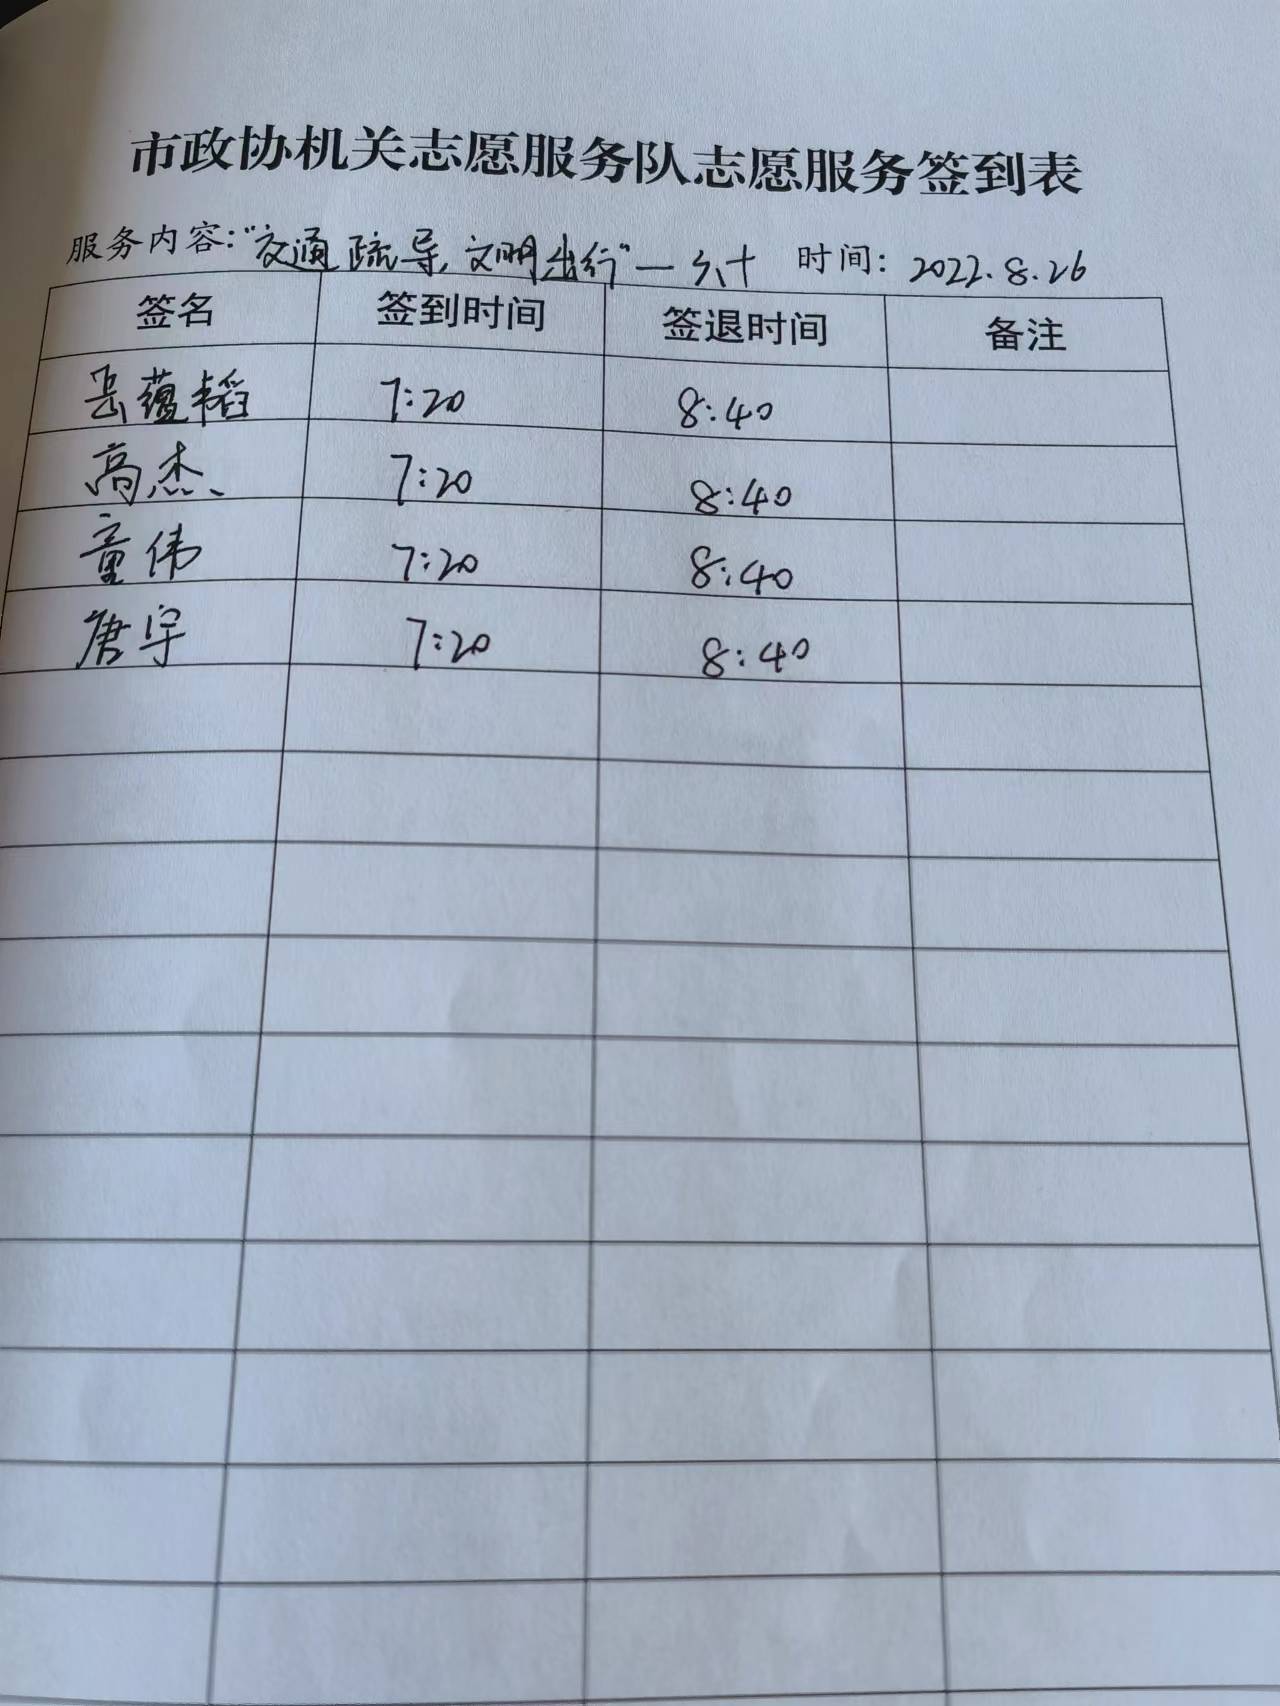 市政协机关志愿服务队志愿服务签到表
服务内容：“交通疏导，文明出行”— 六十 时间：2022.8.26
签名 签到时间 签退时间 备注
岳蕴韬 7:20 8:40
高杰 7:20 8:40
童伟 7:20 8:40
唐宇 7:20 8:40